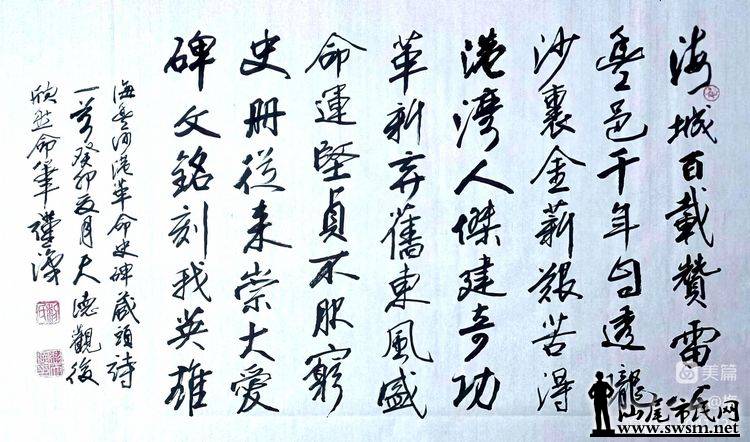 海城百載贊雷
豐邑千年自透龍
沙裏金薪艱苦得
港灣人傑建奇功
革新弃舊東風盛
命運堅貞不服窮
史冊從來崇大愛
碑文銘刻我英雄
海豐沙港革命史碑藏頭詩
一首癸卯夏月大德觀後
欣然命筆
美篇
汕尾市民网
www.swsm.net